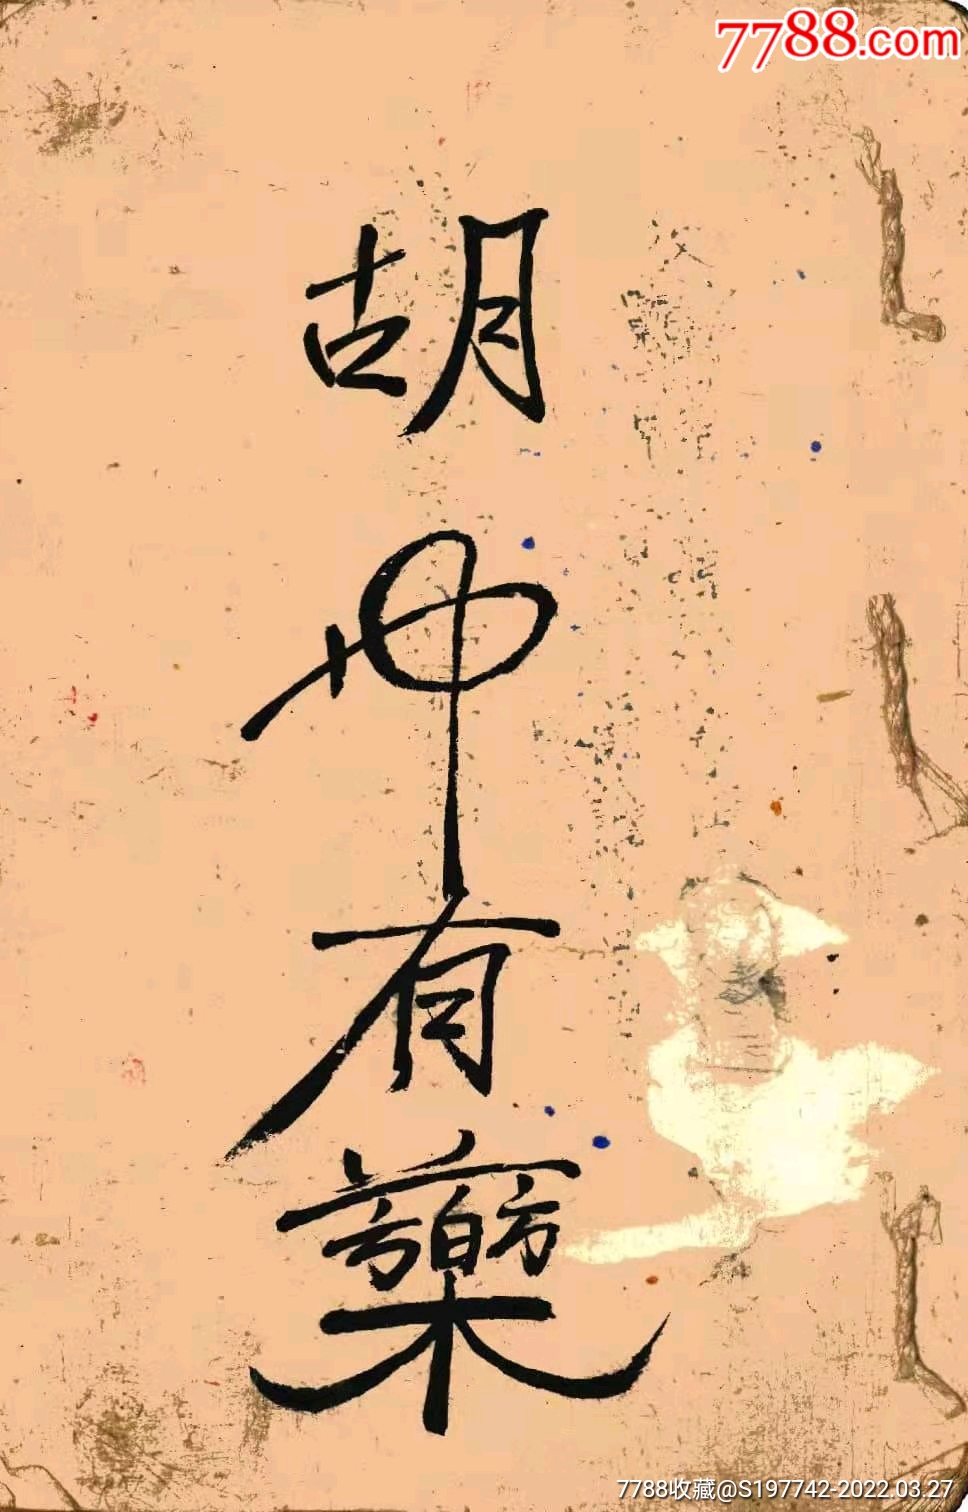 7788.com
胡
中有藥
7788收藏@S197742-2022.03.27